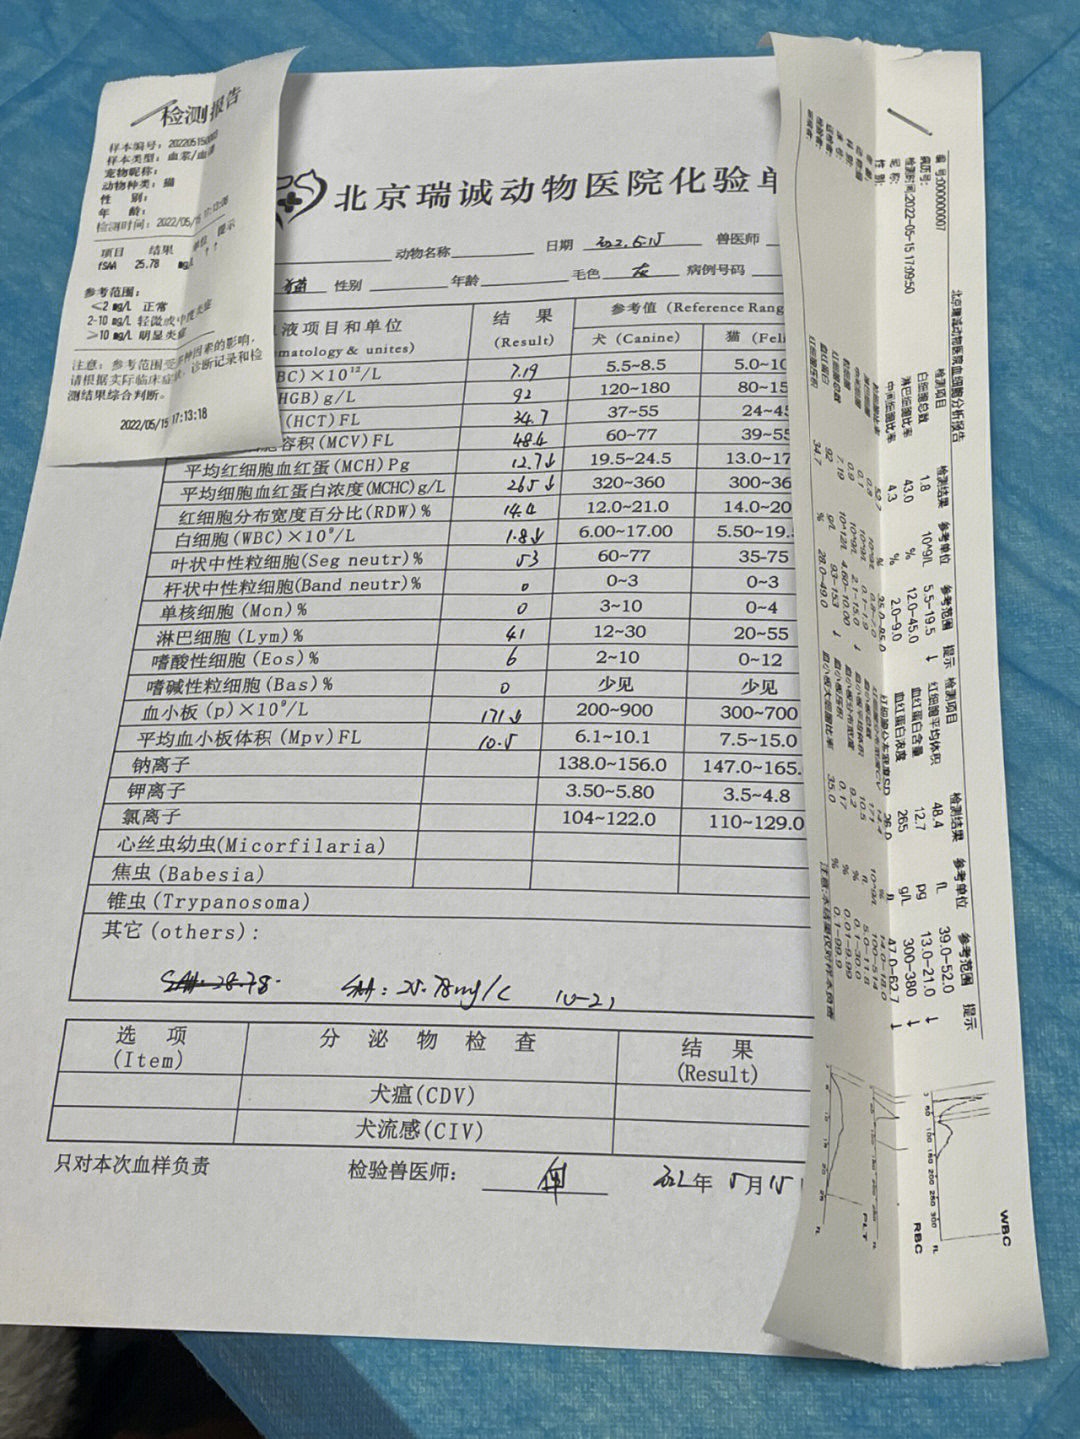 检测报告
样本编号：20220515
样本类型：血浆/血清
宠物昵称：
动物种类：猫
性 别：
年 龄：
检测时间：2022/05/15 17:13:08
项目 结果 单位 提示
fSAA 25.78 mg/L ↑↑
参考范围：
≤2 mg/L 正常
2-10 mg/L 轻微或中度炎症
≥10 mg/L 明显炎症
注意：参考范围受多种因素的影响，
请根据实际临床症状、诊断记录和检
测结果综合判断。
2022/05/15 17:13:18
北京瑞诚动物医院化验单
动物名称 日期 2022.5.15 兽医师
猫 性别 年龄 毛色 灰 病例号码
液项目和单位 结 果 参考值 (Reference Rang
matology & unites) (Result) 犬 (Canine) 猫 (Feli
BC)×10¹²/L 7.19 5.5~8.5 5.0~10
HGB) g/L 92 120~180 80~15
(HCT) FL 34.7 37~55 24~45
容积 (MCV) FL 48.4 60~77 39~55
平均红细胞血红蛋 (MCH) Pg 12.7↓ 19.5~24.5 13.0~17
平均细胞血红蛋白浓度(MCHC)g/L 265↓ 320~360 300~36
红细胞分布宽度百分比(RDW)% 14.4 12.0~21.0 14.0~20
白细胞(WBC)×10⁹/L 1.8↓ 6.00~17.00 5.50~19.
叶状中性粒细胞(Seg neutr)% 53 60~77 35-75
杆状中性粒细胞(Band neutr)% 0 0~3 0~3
单核细胞(Mon)% 0 3~10 0~4
淋巴细胞(Lym)% 41 12~30 20~55
嗜酸性细胞(Eos)% 6 2~10 0~12
嗜碱性细胞(Bas)% 0 少见 少见
血小板(p)×10⁹/L 171↓ 200~900 300~700
平均血小板体积(Mpv)FL 10.5 6.1~10.1 7.5~15.0
钠离子 138.0~156.0 147.0~165.
钾离子 3.50~5.80 3.5~4.8
氯离子 104~122.0 110~129.0
心丝虫幼虫(Micorfilaria)
焦虫(Babesia)
锥虫(Trypanosoma)
其它(others):
SAA: 25.78mg/L
选 项 分 泌 物 检 查 结 果
(Item) (Result)
犬瘟(CDV)
犬流感(CIV)
只对本次血样负责 检验兽医师： 2022年 5月15
北京瑞诚动物医院血细胞分析报告
编 号:0000000007
病历号:
检测时间:2022-05-15 17:09:50
昵 称:
性 别:
检测项目 检测结果 参考单位 参考范围 提示 检测项目 检测结果 参考单位 参考范围 提示
白细胞总数 1.8 10^9/L 5.5~19.5 ↓ 红细胞平均体积 48.4 fL 39.0~52.0
淋巴细胞比率 43.0 % 12.0~45.0 血红蛋白含量 12.7 pg 13.0~21.0 ↓
中间细胞比率 4.3 % 2.0~9.0 血红蛋白浓度 265 g/L 300~380 ↓
WBC
RBC
PLT